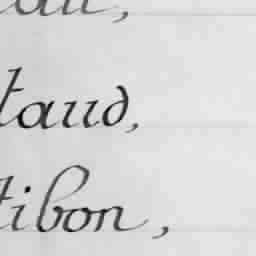 taud,
tibon,